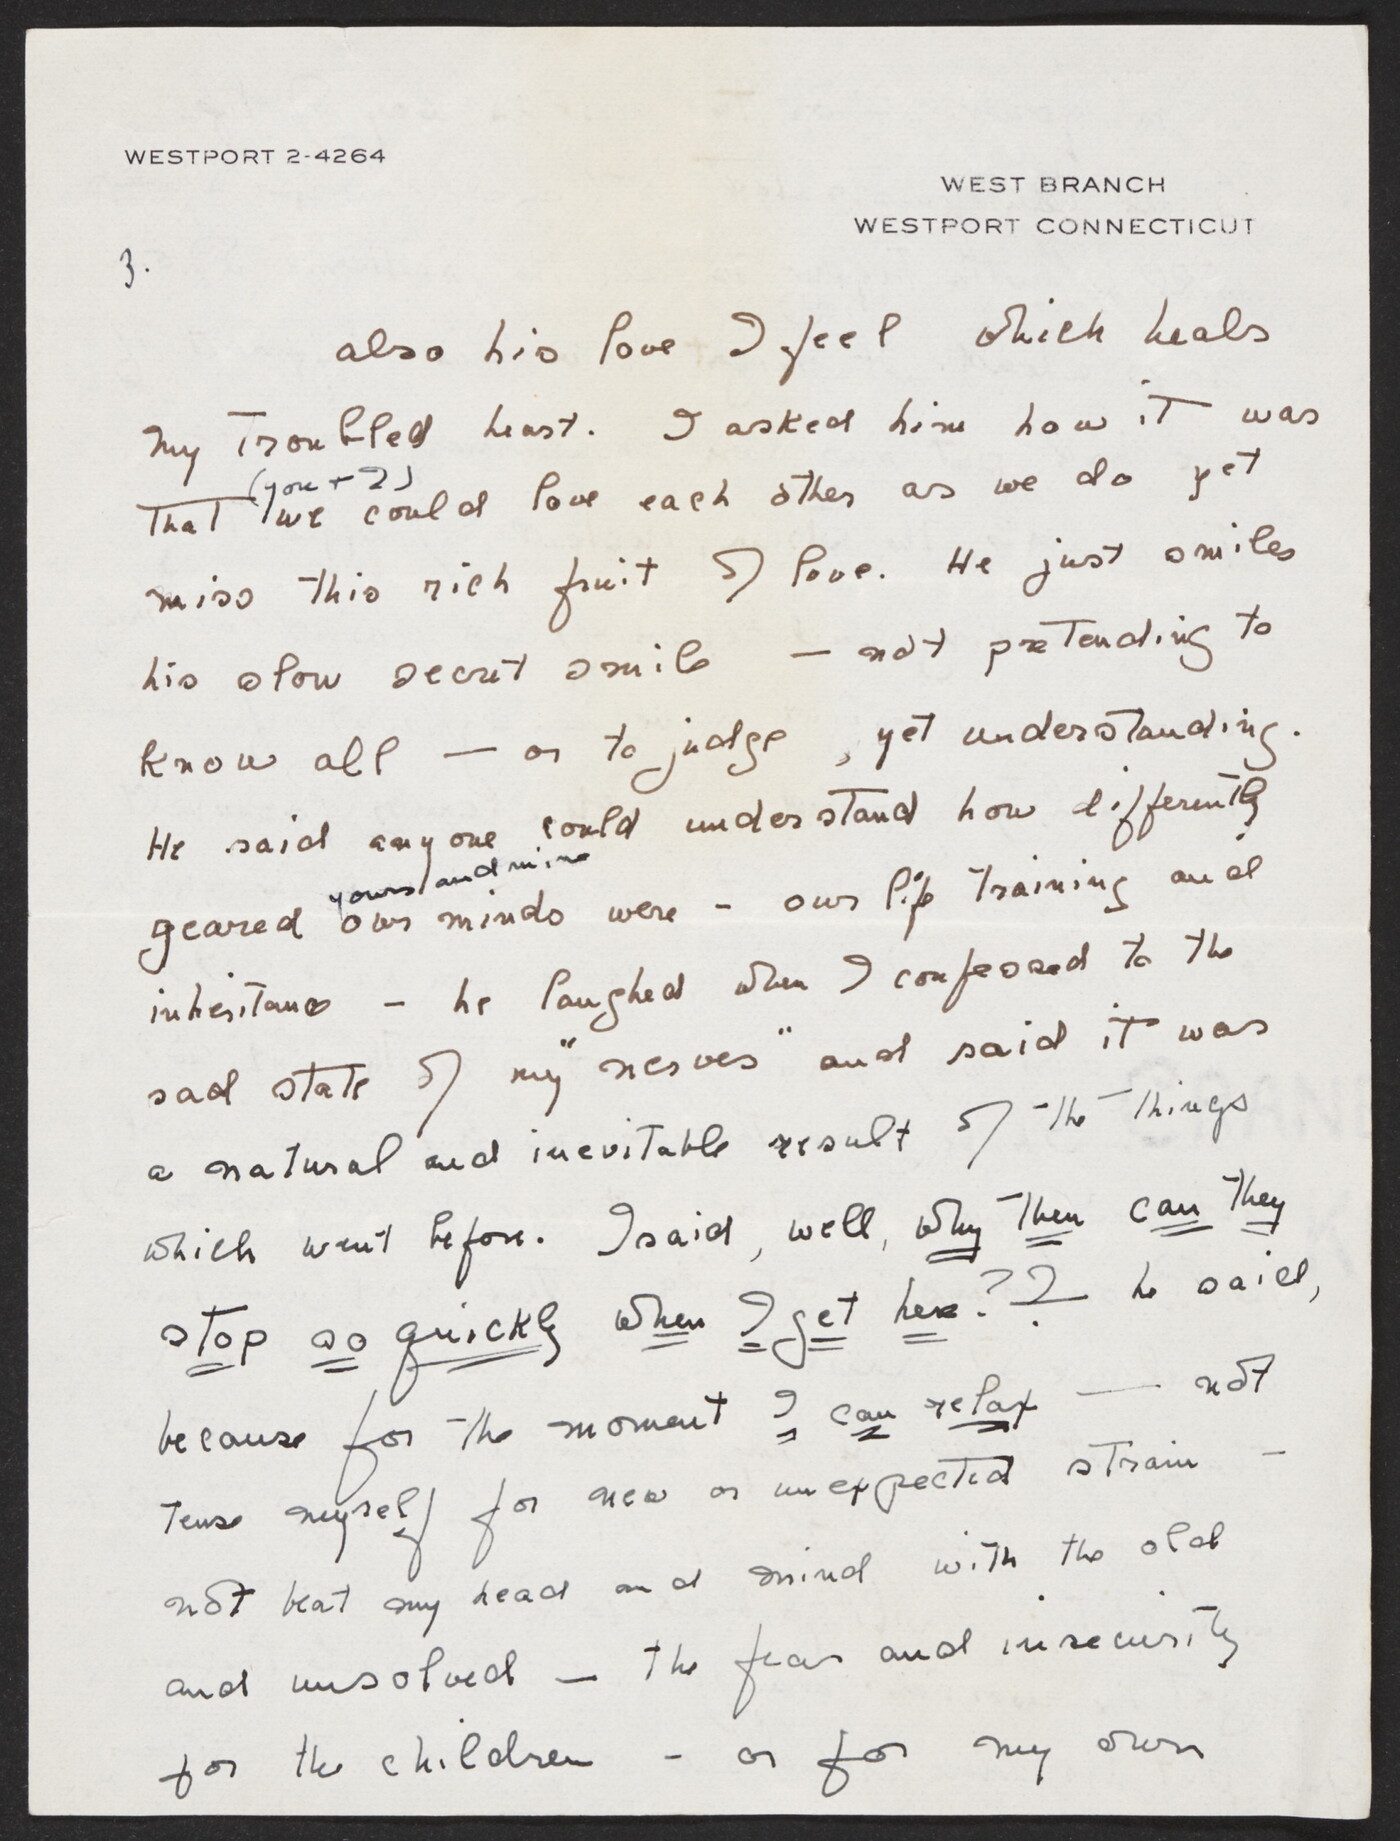 WESTPORT 2-4264
WEST BRANCH
WESTPORT CONNECTICUT
3.
also his love I feel which heals
my troubled heart. I asked him how it was
(you + I)
that we could love each other as we do yet
miss this rich fruit of love. He just smiles
his slow secret smile — not pretending to
know all — or to judge, yet understanding.
He said anyone could understand how differently
yours and mine
geared our minds were - our life training and
inheritance - he laughed when I confessed to the
sad state of my "nerves" and said it was
a natural and inevitable result of the things
which went before. I said, well, why then can they
stop so quickly when I get here?? he said,
because for the moment I can relax — not
tense myself for new or unexpected strain -
not beat my head and mind with the old
and unsolved — the fear and insecurity
for the children - or for my own